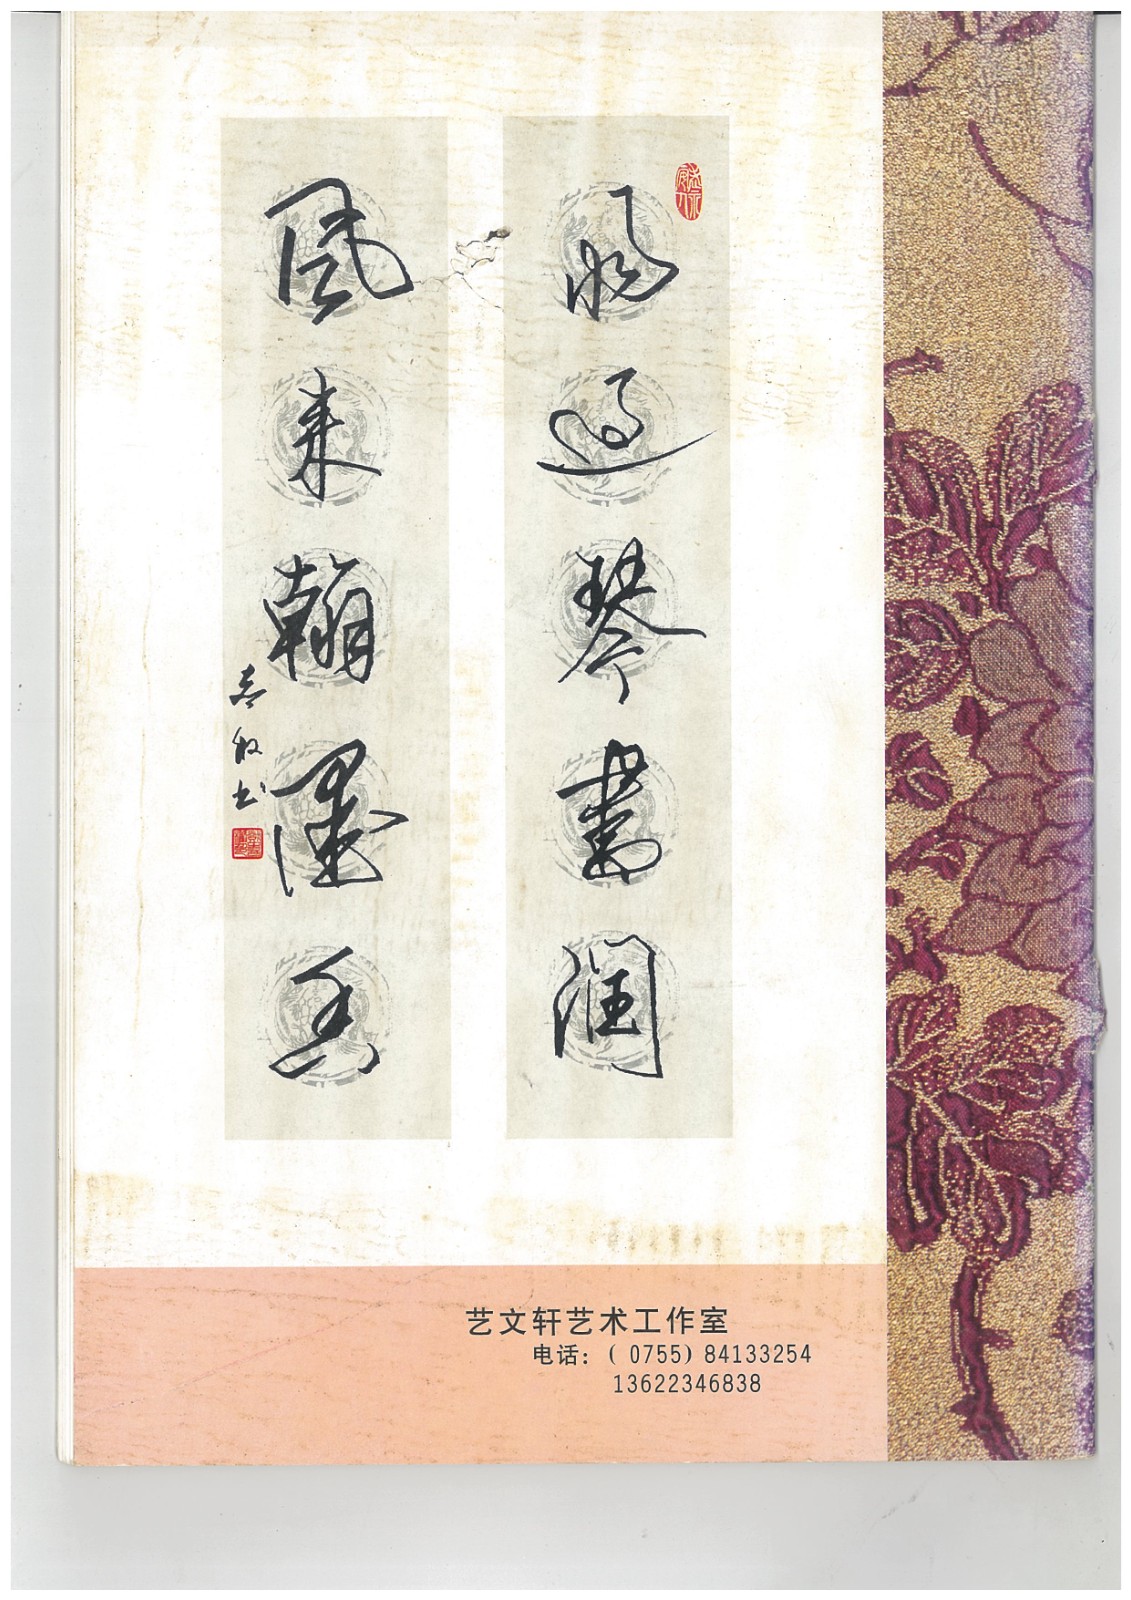 雨过琴书润
风来翰墨香
志敏书
艺文轩艺术工作室
电话：（0755）84133254
13622346838